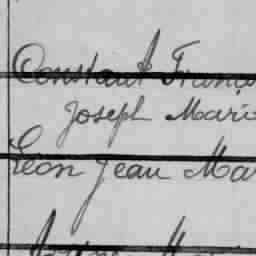 Constant Franço
Joseph Mario
Léon Jean Mar